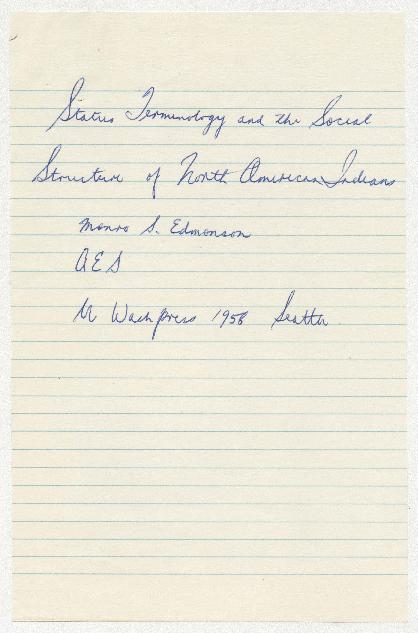 Status Terminology and the Social
Structure of North American Indians
Monro S. Edmonson
AES
U Wash press 1958 Seattle